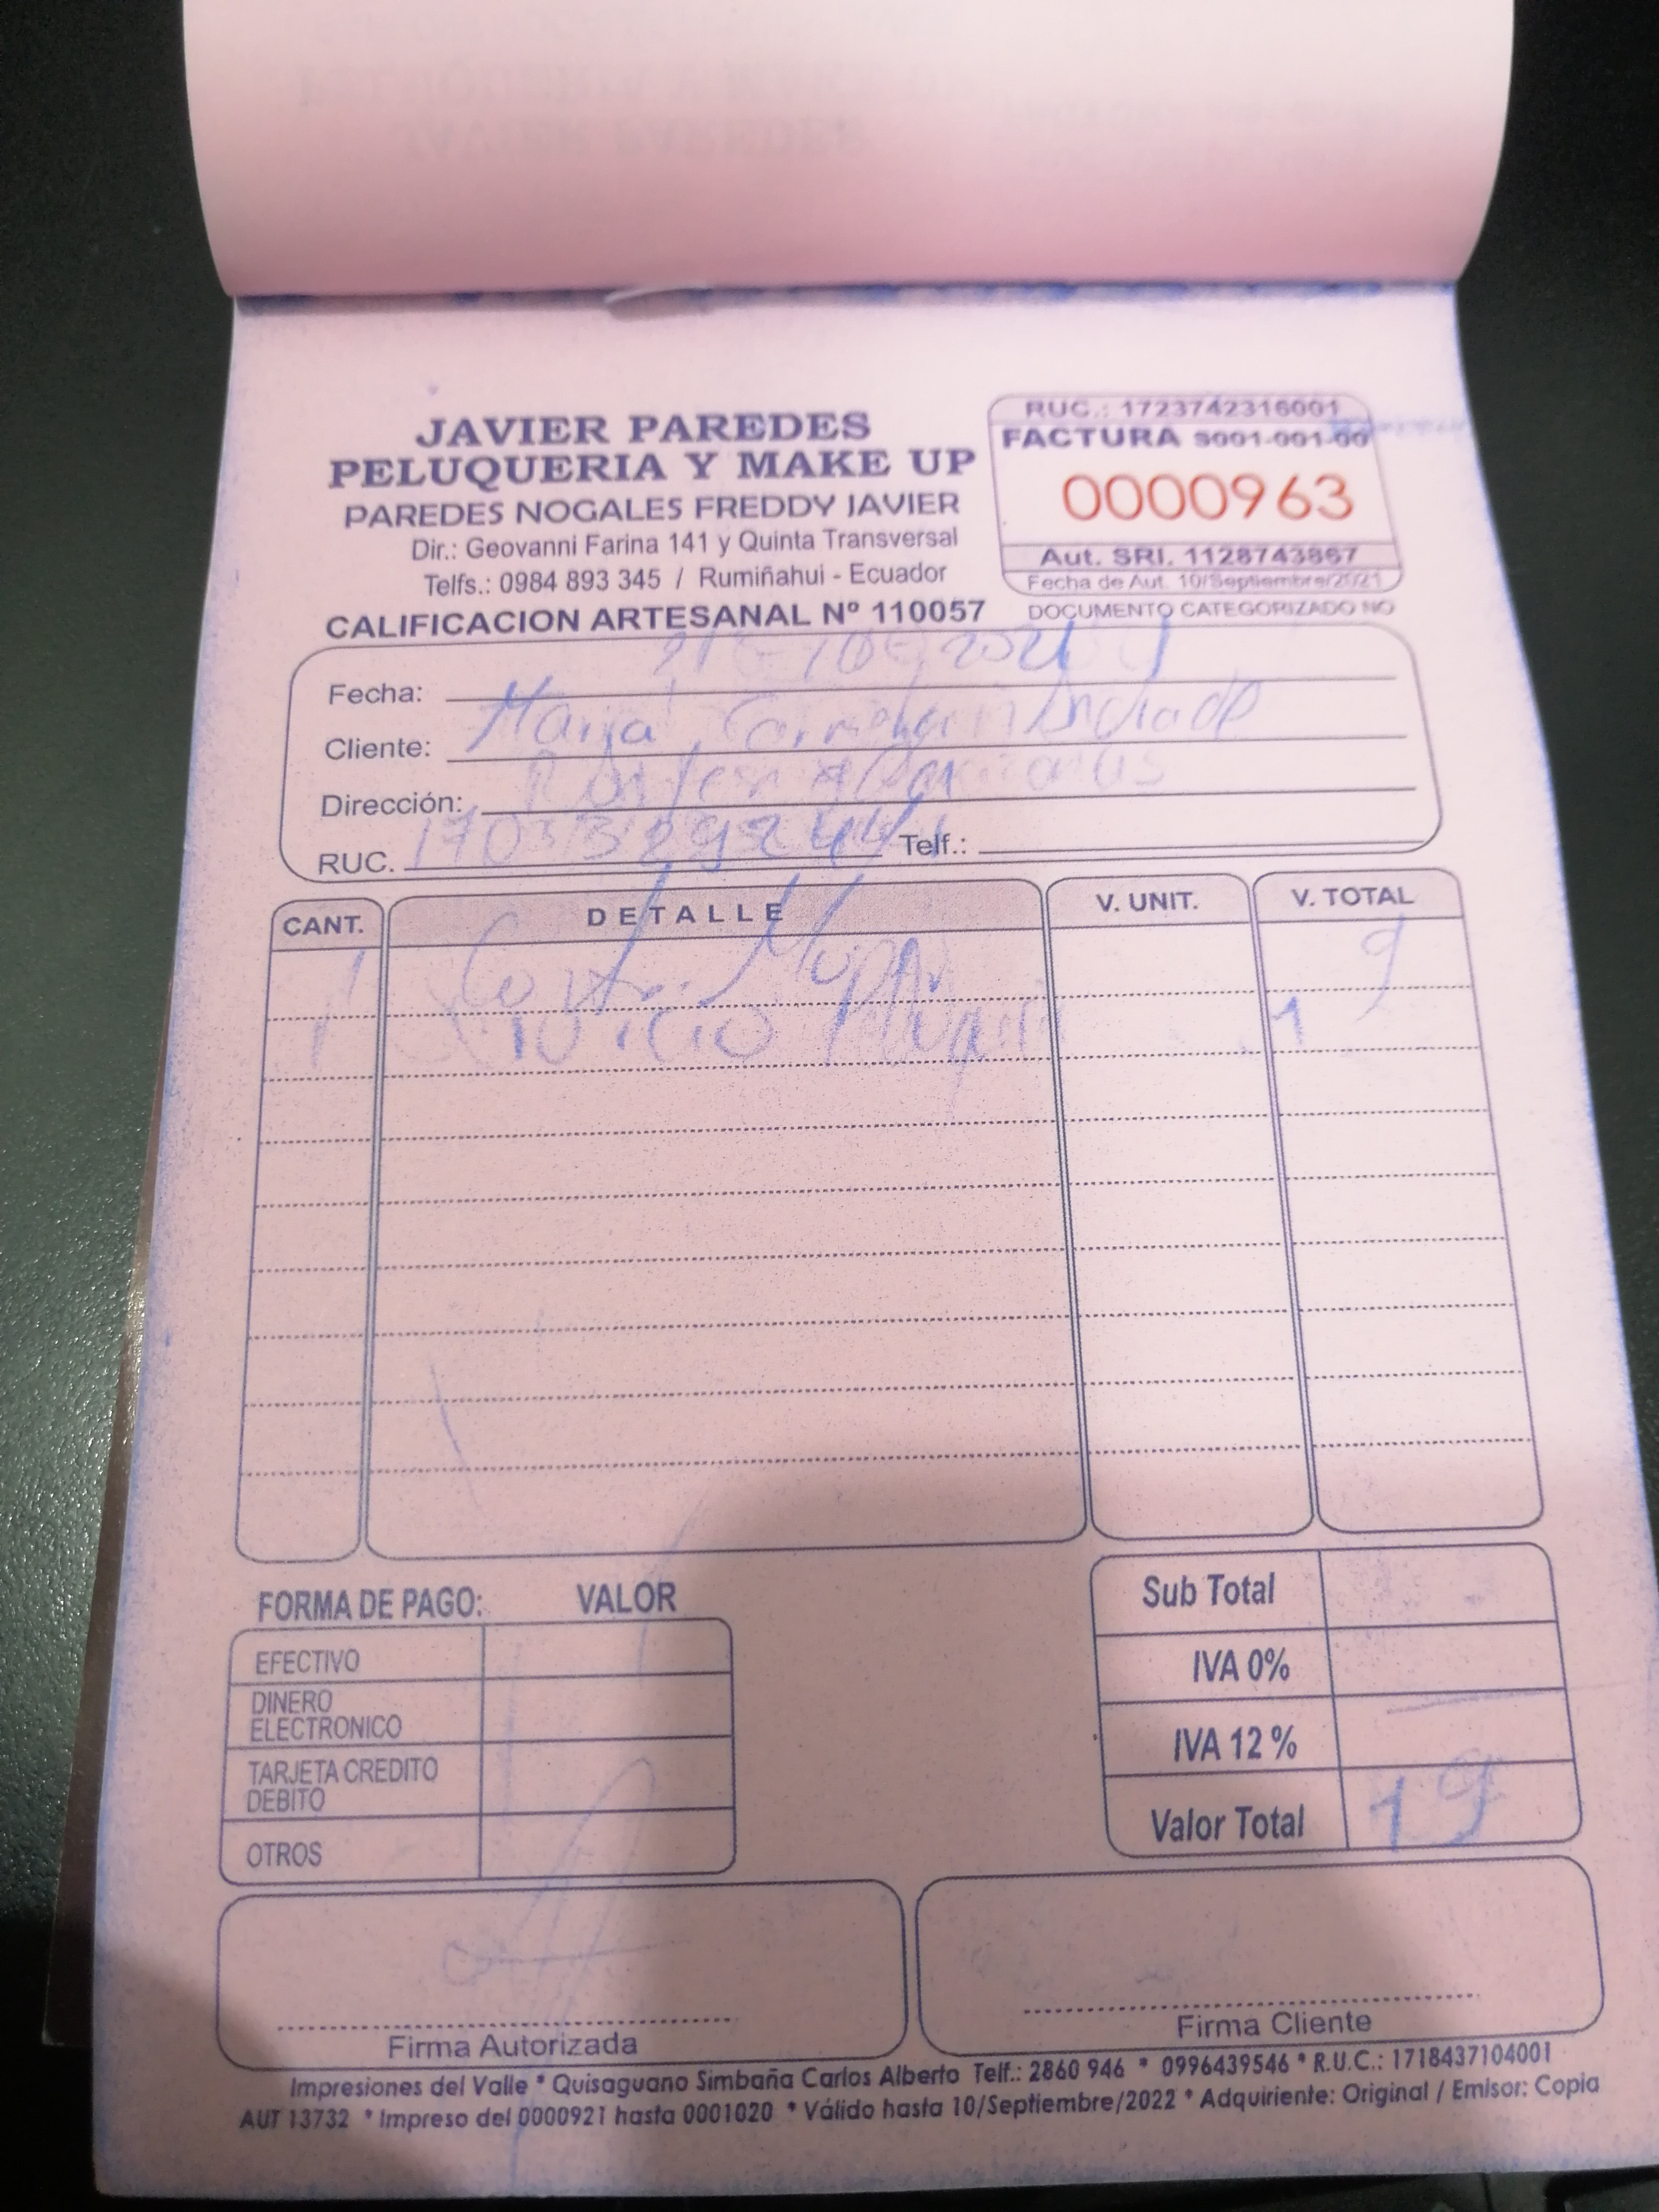 JAVIER PAREDES
PELUQUERIA Y MAKE UP
PAREDES NOGALES FREDDY JAVIER
Dir.: Geovanni Farina 141 y Quinta Transversal
Telfs.: 0984 893 345 / Rumiñahui - Ecuador
CALIFICACION ARTESANAL Nº 110057
RUC.: 1723742316001
FACTURA S001-001-00
0000963
Aut. SRI. 1128743867
Fecha de Aut. 10/Septiembre/2021
DOCUMENTO CATEGORIZADO NO
Fecha:
Cliente: Maria Andrade
Dirección:
RUC. Telf.:
CANT. DETALLE V. UNIT. V. TOTAL
1 Corte Mujer 9
1
FORMA DE PAGO: VALOR
EFECTIVO
DINERO
ELECTRONICO
TARJETA CREDITO
DEBITO
OTROS
Sub Total
IVA 0%
IVA 12 %
Valor Total 19
Firma Autorizada
Firma Cliente
Impresiones del Valle * Quisaguano Simbaña Carlos Alberto Telf.: 2860 946 * 0996439546 * R.U.C.: 1718437104001
AUT 13732 * Impreso del 0000921 hasta 0001020 * Válido hasta 10/Septiembre/2022 * Adquiriente: Original / Emisor: Copia